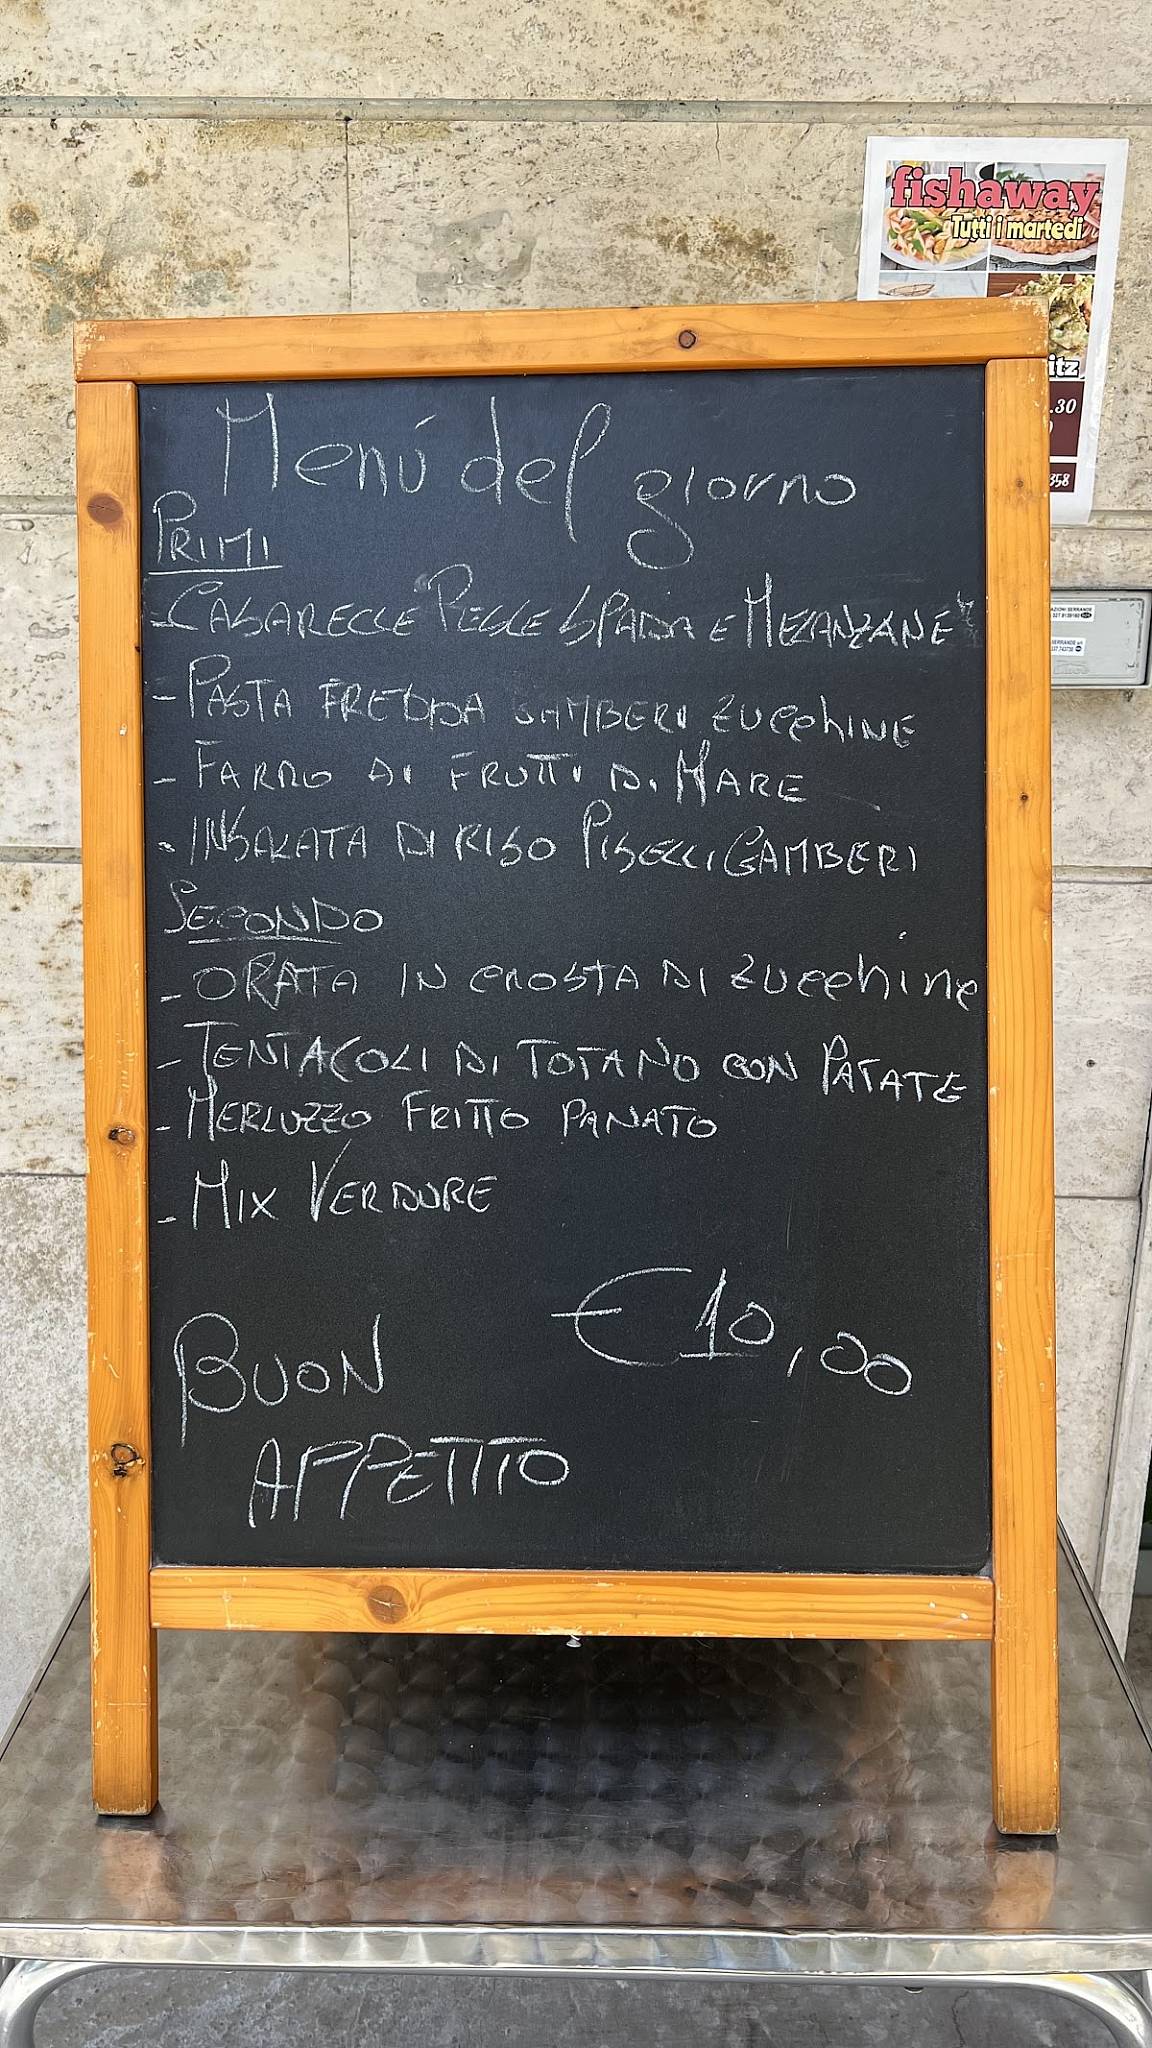 fishaway
Tutti i martedi
itz
.30
358
Menú del giorno
PRIMI
- CASARECCE PESCE SPADA E MELANZANE
- PASTA FREDDA GAMBERI ZUCCHINE
- FARRO AI FRUTTI DI MARE
- INSALATA DI RISO PISELLI GAMBERI
SECONDO
- ORATA IN CROSTA DI ZUCCHINE
- TENTACOLI DI TOTANO CON PATATE
- MERLUZZO FRITTO PANATO
- MIX VERDURE
€ 10,00
BUON
APPETITO